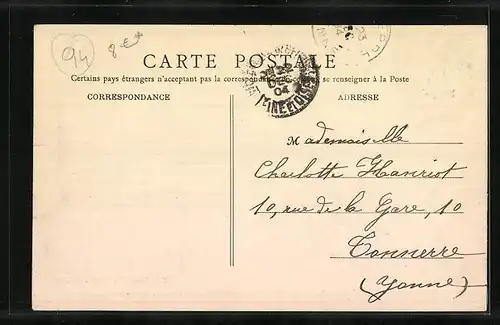 94 8 €
CARTE POSTALE
Certains pays étrangers n'acceptant pas la correspondance se renseigner à la Poste
CORRESPONDANCE
ADRESSE
04
Mademoiselle
Charlotte Hanriot
10, rue de la Gare, 10
Tonnerre
(Yonne)